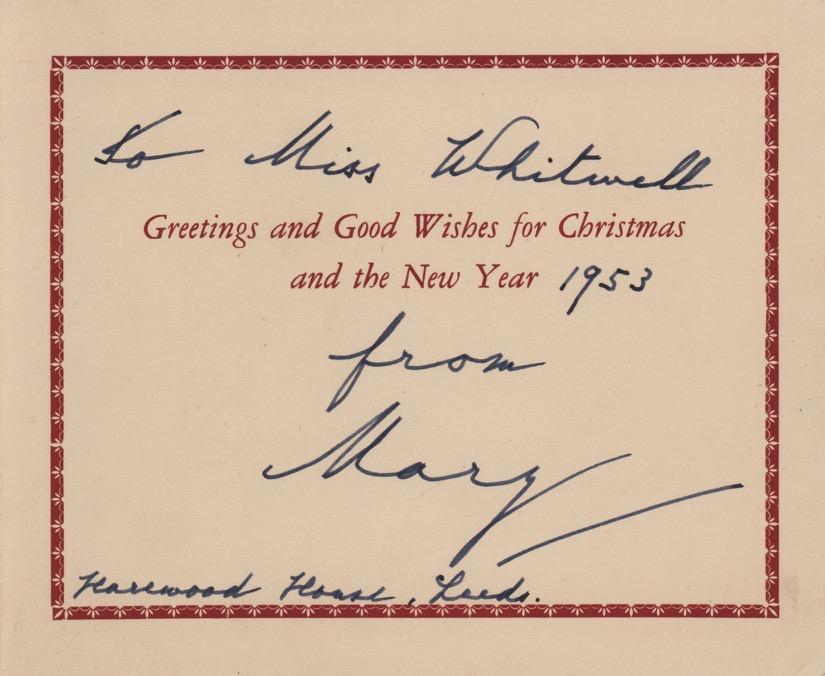 To Miss Whitwell
Greetings and Good Wishes for Christmas
and the New Year 1953
from
Mary
Harewood House, Leeds.